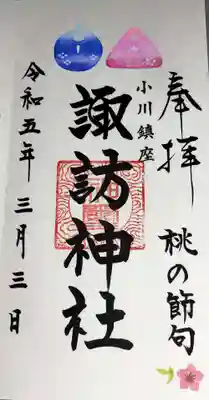 奉拝
桃の節句
小川鎮座
諏訪神社
令和五年
三月三日